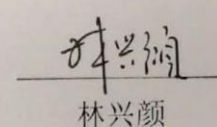 林兴润
林兴颜